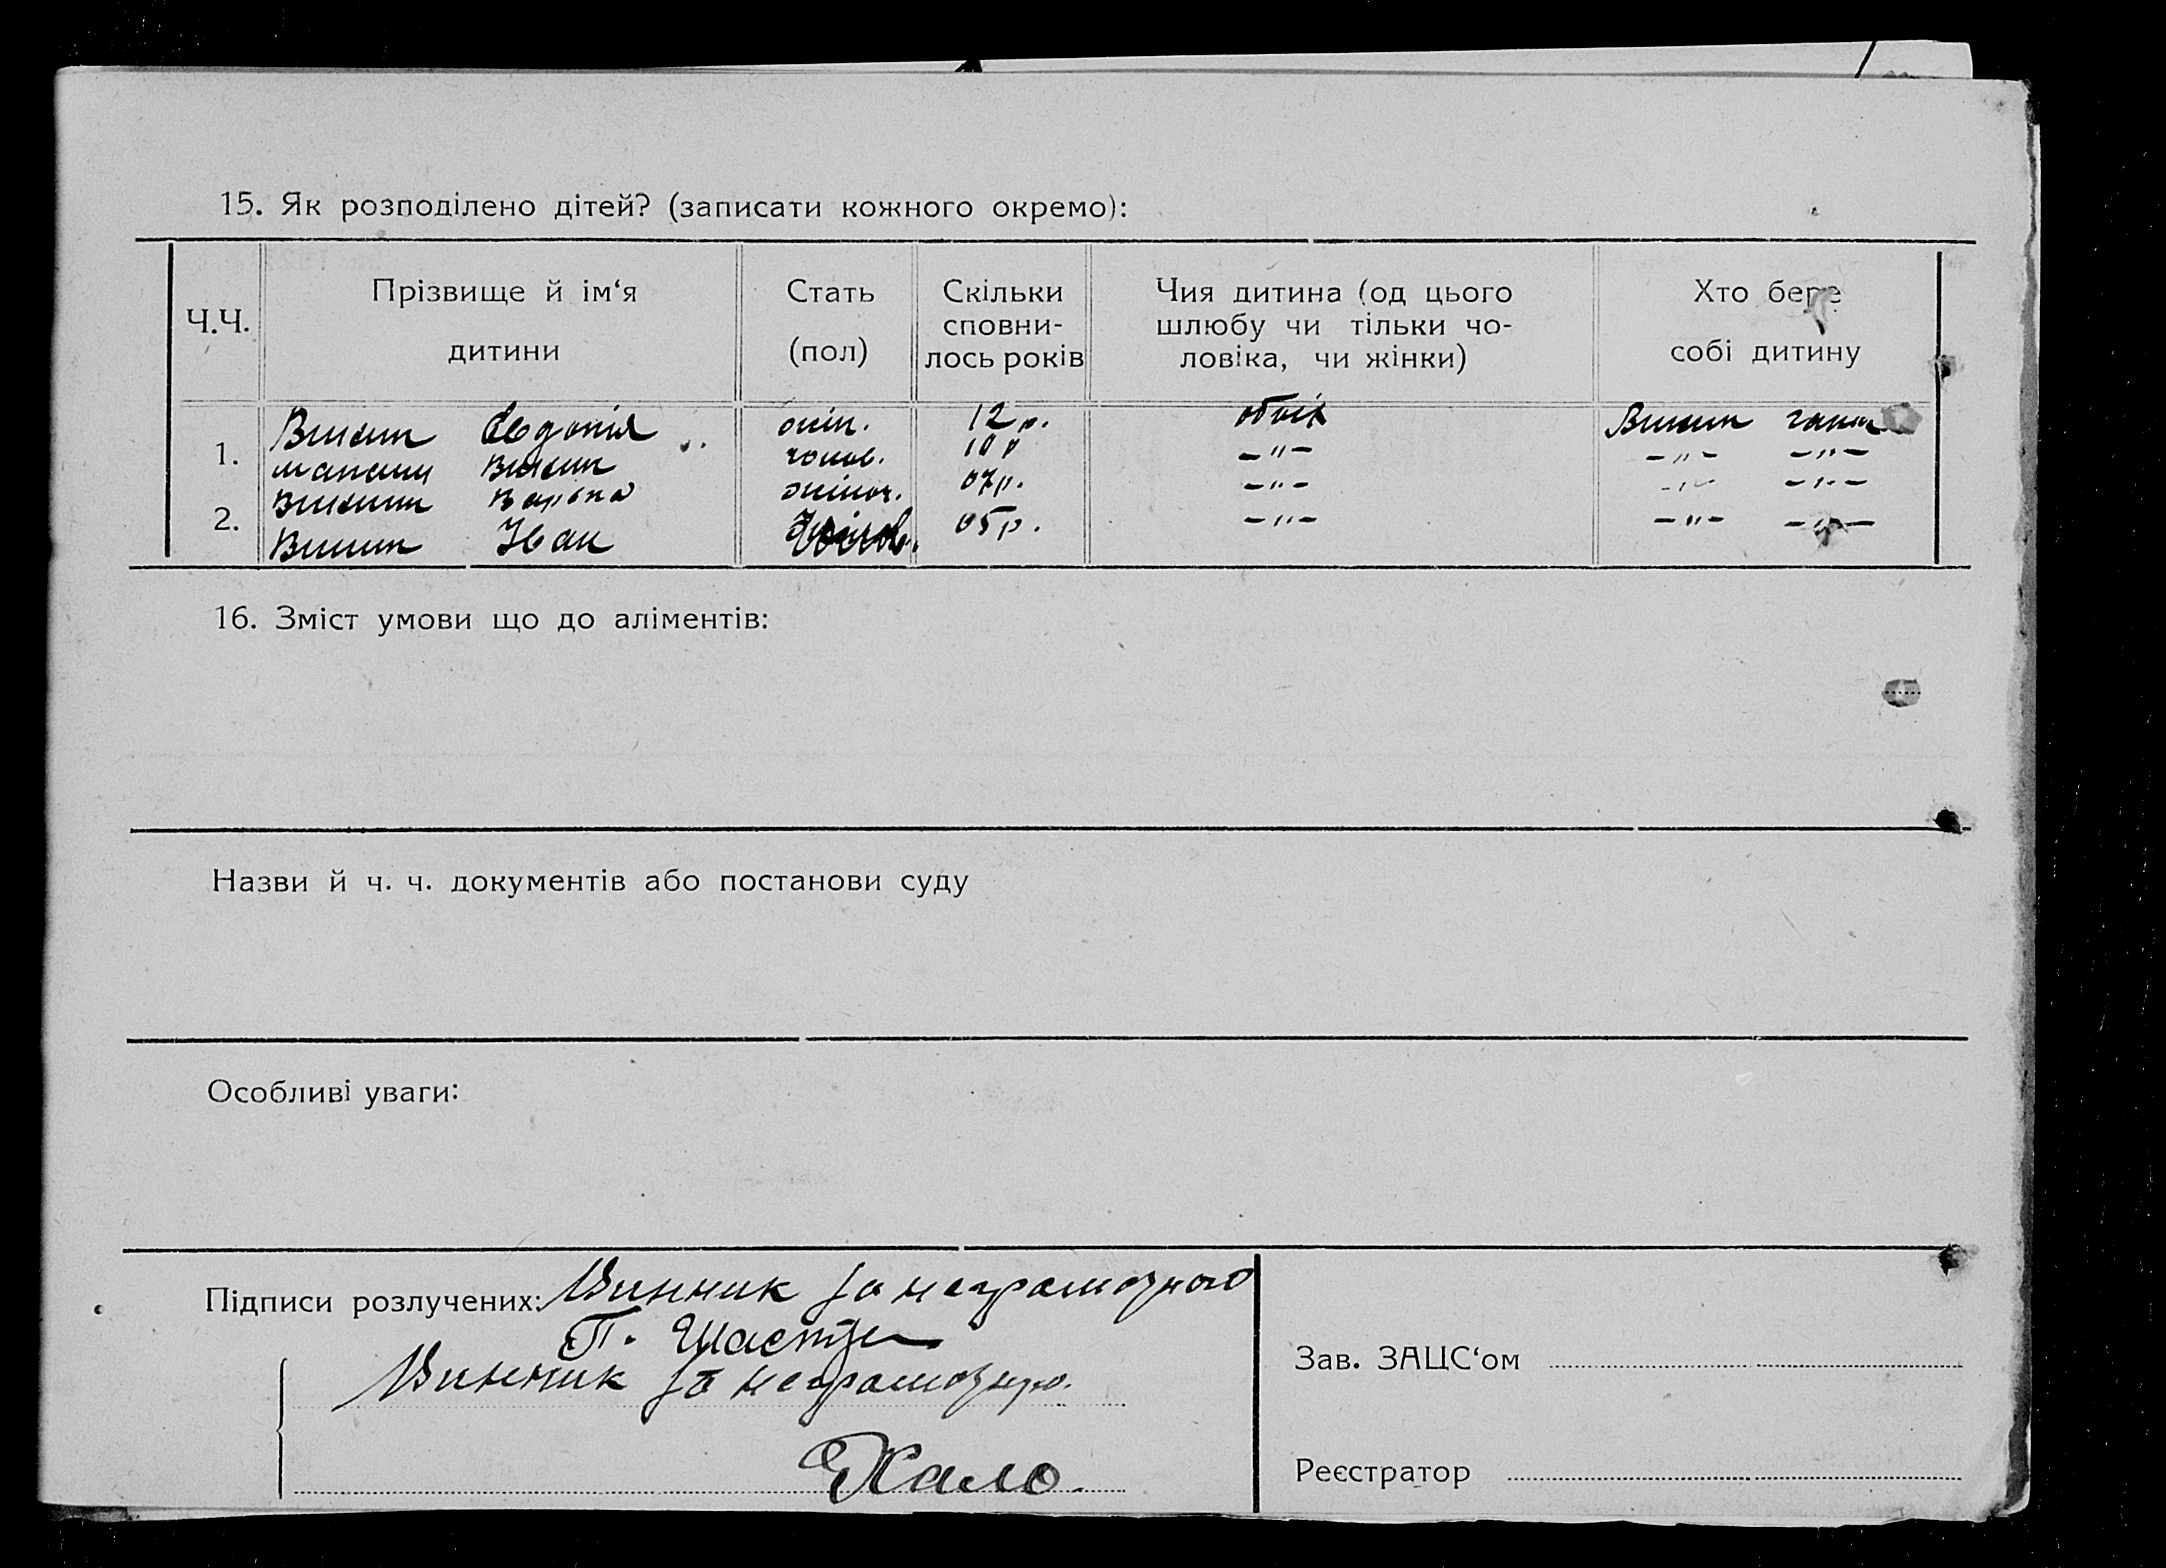 15. Як розподілено дітей? (записати кожного окремо):
Ч.Ч.
Прізвище й ім‘я
дитини
Стать
(пол)
Скільки
сповни-
лось років
Чия дитина (од цього
шлюбу чи тільки чо-
ловіка, чи жінки)
Хто бере
собі дитину
1.
2.
12 р.
10 р
07р.
обоіх
-"-
-"-
-"- -"-
-"- -"-
Іван
05р.
-"-
-"- -"-
16. Зміст умови що до аліментів:
Назви й ч. ч. документів або постанови суду
Особливі уваги:
Підписи розлучених: Винник за неграмотного
П.
Винник за неграмотну.
Хало.
Зав. ЗАЦС‘ом
Реєстратор